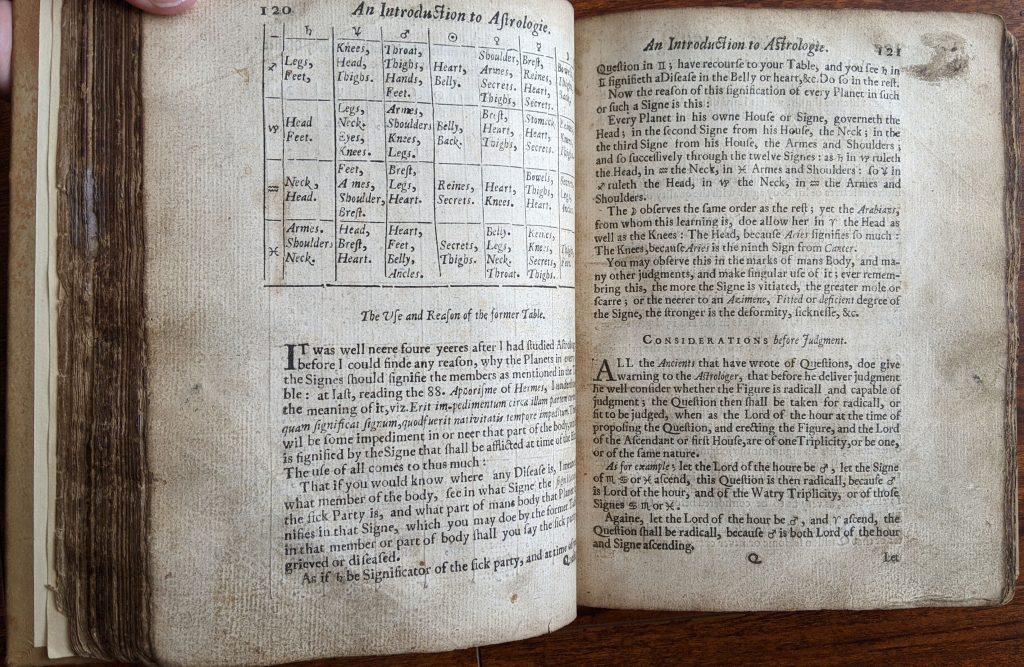 120 An Introduction to Aſtrologie.
♄ ♃ ♂ ☉ ♀ ☿ ☽
♐ Legs, Feet, | Knees, Head, Thighs. | Throat, Thighs, Hands, Feet. | Heart, Belly. | Shoulder, Armes, Secrets, Thighs, | Breſt, Reines, Heart, Secrets.
♑ Head Feet. | Legs, Neck, Eyes, Knees. | Armes, Shoulders Knees, Legs. | Belly, Back. | Breſt, Heart, Thighs, | Stomack, Heart, Secrets.
♒ Neck, Head. | Feet, Armes, Shoulder, Breſt. | Breſt, Legs, Heart. | Reines, Secrets. | Heart, Knees. | Bowels, Thighs, Heart.
♓ Armes. Shoulders Neck. | Head, Breſt, Heart. | Heart, Feet, Belly, Ancles. | Secrets, Thighs. | Belly. Legs, Neck. Throat. | Reines, Knees, Secrets, Thighs.
The Uſe and Reaſon of the former Table.
IT was well neere foure yeeres after I had ſtudied
before I could finde any reaſon, why the Planets in
the Signes ſhould ſignifie the members as mentioned in the
ble: at laſt, reading the 88. Aporiſme of Hermes, I
the meaning of it, viz. Erit impedimentum circa illam partem
quam ſignificat ſignum, quod fuerit nativitatis tempore
wil be ſome impediment in or neer that part of the body
is ſignified by the Signe that ſhall be afflicted at time of the
The uſe of all comes to thus much:
That if you would know where any Diſeaſe is, I
what member of the body, ſee in what Signe the
the ſick Party is, and what part of mans body that
nifies in that Signe, which you may doe by the former
in that member or part of body ſhall you ſay the ſick
grieved or diſeaſed.
As if ♄ be Significator of the ſick party, and at time
An Introduction to Aſtrologie. 121
Queſtion in ♊; have recourſe to your Table, and you ſee ♄ in
♊ ſignifieth a Diſeaſe in the Belly or heart, &c. Do ſo in the reſt.
Now the reaſon of this ſignification of every Planet in ſuch
or ſuch a Signe is this:
Every Planet in his owne Houſe or Signe, governeth the
Head; in the ſecond Signe from his Houſe, the Neck; in the
the third Signe from his Houſe, the Armes and Shoulders;
and ſo ſucceſſively through the twelve Signes: as ♄ in ♑ ruleth
the Head, in ♒ the Neck, in ♓ Armes and Shoulders: ſo ♃ in
♐ ruleth the Head, in ♑ the Neck, in ♒ the Armes and
Shoulders.
The ☽ obſerves the ſame order as the reſt; yet the Arabians,
from whom this learning is, doe allow her in ♈ the Head as
well as the Knees: The Head, becauſe Aries ſignifies ſo much:
The Knees, becauſe Aries is the ninth Sign from Cancer.
You may obſerve this in the marks of mans Body, and ma-
ny other judgments, and make ſingular uſe of it; ever remem-
bring this, the more the Signe is vitiated, the greater mole or
ſcarre; or the neerer to an Azimene, Pitted or deficient degree of
the Signe, the ſtronger is the deformity, ſickneſſe, &c.
CONSIDERATIONS before Judgment.
ALL the Ancients that have wrote of Queſtions, doe give
warning to the Aſtrologer, that before he deliver judgment
he well conſider whether the Figure is radicall and capable of
judgment; the Queſtion then ſhall be taken for radicall, or
fit to be judged, when as the Lord of the hour at the time of
propoſing the Queſtion, and erecting the Figure, and the Lord
of the Aſcendant or firſt Houſe, are of one Triplicity, or be one,
or of the ſame nature.
As for example; let the Lord of the houre be ♂, let the Signe
of ♏ ♋ or ♓ aſcend, this Queſtion is then radicall, becauſe ♂
is Lord of the hour, and of the Watry Triplicity, or of thoſe
Signes ♋ ♏ or ♓.
Againe, let the Lord of the hour be ♂, and ♈ aſcend, the
Queſtion ſhall be radicall, becauſe ♂ is both Lord of the hour
and Signe aſcending,
Q Let